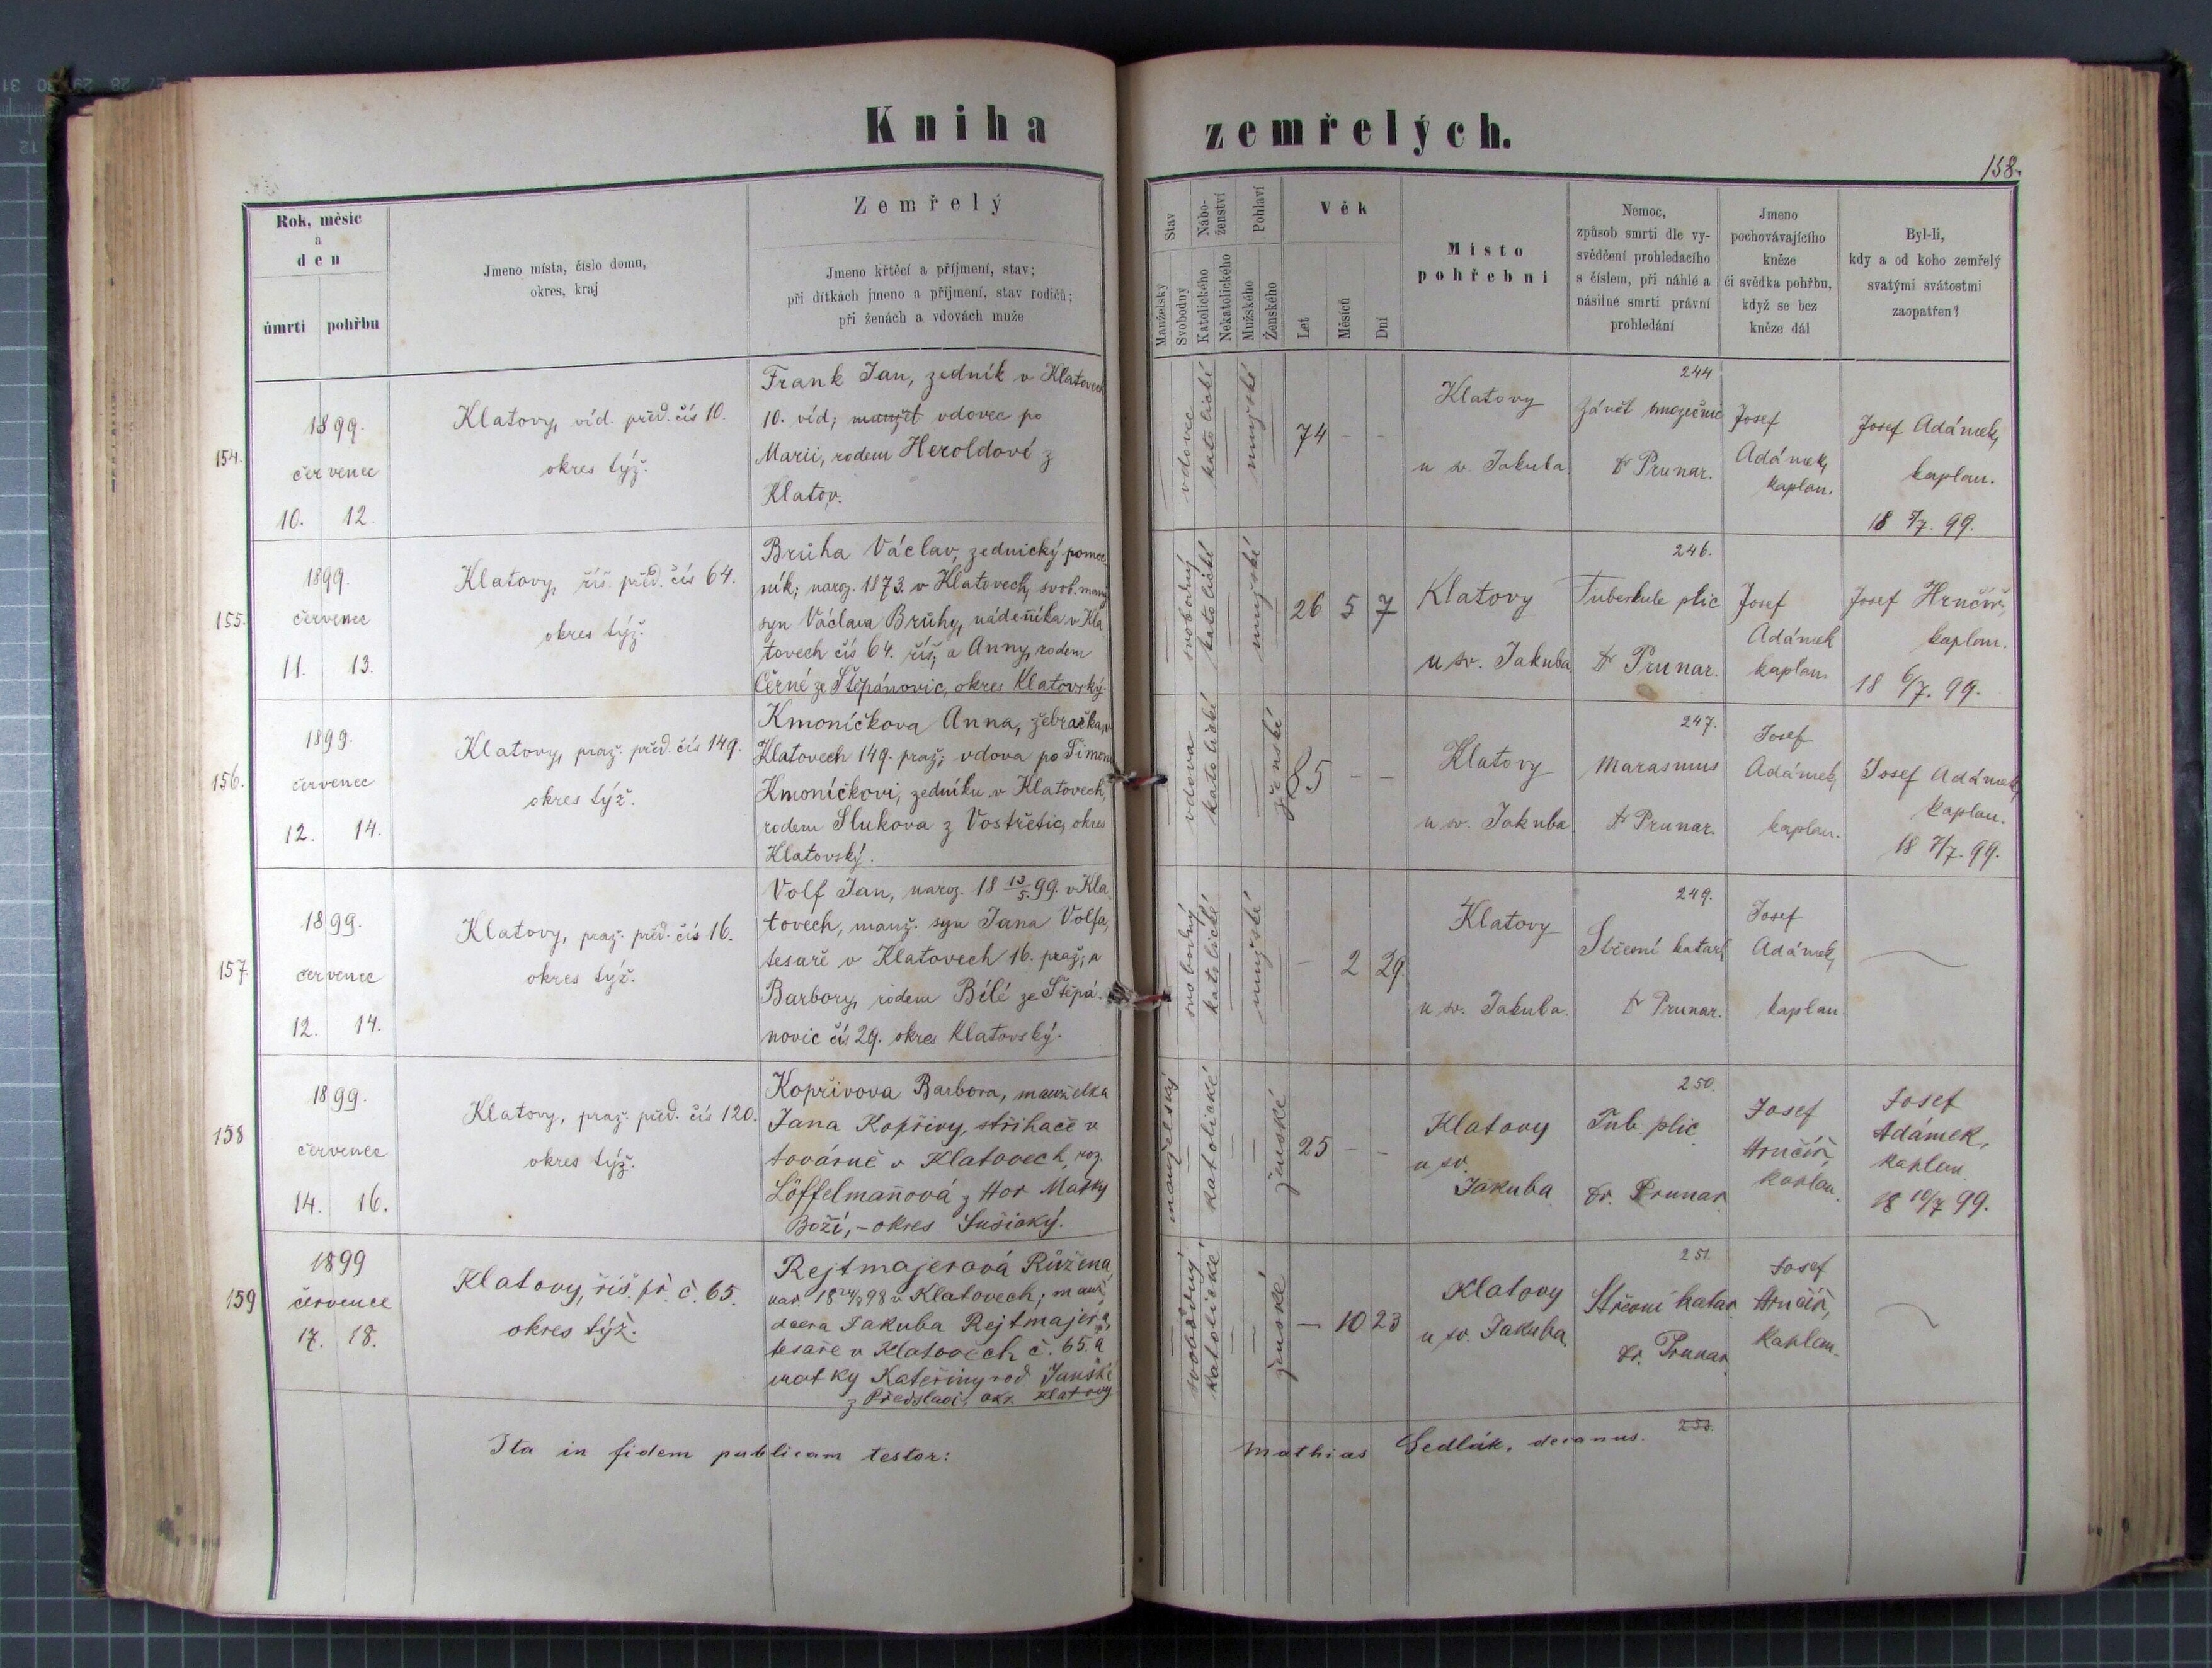 Kniha zemřelých.
158.
Rok, měsíc
a
den
úmrtí pohřbu
Jmeno místa, číslo domu,
okres, kraj
Zemřelý
Jmeno křtěcí a příjmení, stav;
při dítkách jmeno a příjmení, stav rodičů;
při ženách a vdovách muže
Stav
Manželský
Svobodný
Nábo-
ženství
Katolického
Nekatolického
Pohlaví
Mužského
Ženského
Věk
Let
Měsíců
Dní
Místo
pohřební
Nemoc,
způsob smrti dle vy-
svědčení prohledacího
s číslem, při náhlé a
násilné smrti právní
prohledání
Jmeno
pochovávajícího
kněze
či svědka pohřbu,
když se bez
kněze dál
Byl-li,
kdy a od koho zemřelý
svatými svátostmi
zaopatřen?
154.
1899.
červenec
10. 12.
Klatovy, víd. před. čís 10.
okres týž.
Frank Jan, zedník v Klatovech
10. víd; manžel vdovec po
Marii, rodem Heroldoví z
Klatov.
vdovec
katolické
mužské
74 - -
Klatovy
u sv. Jakuba
244.
Dr Prunar.
Josef
Adámek,
kaplan.
Josef Adámek,
kaplan.
18 5/7. 99.
155.
1899.
červenec
11. 13.
Klatovy, říš. před. čís 64.
okres týž.
Brůha Václav, zednický pomoc
ník; naroz. 1873. v Klatovech, svob. manž
syn Václava Brůhy, nádeníka v Kla
tovech čís 64. říš; a Anny, rodem
Černé ze Štěpánovic, okres Klatovský.
svobodný
katolické
mužské
26 5 7
Klatovy
u sv. Jakuba
246.
Tuberkule plic
Dr Prunar.
Josef
Adámek
kaplan.
Josef Hrnčíř,
kaplan.
18 6/7. 99.
156.
1899.
červenec
12. 14.
Klatovy, praž. před. čís 149.
okres týž.
Kmoníčkova Anna, žebračka, v
Klatovech 149. praž; vdova po Šimonu
Kmoníčkovi, zedníku v Klatovech,
rodem Slukova z Vostřetic, okres
Klatovský.
vdova
katolické
ženské
85 - -
Klatovy
u sv. Jakuba
247.
Marasmus
Dr Prunar.
Josef
Adámek,
kaplan.
Josef Adámek,
kaplan.
18 7/7. 99.
157.
1899.
červenec
12. 14.
Klatovy, praž. před. čís 16.
okres týž.
Volf Jan, naroz. 18 13/5. 99. v Kla
tovech, manž. syn Jana Volfa,
tesaře v Klatovech 16. praž; a
Barbory, rodem Bílé ze Štěpá-
novic čís 29. okres Klatovský.
svobodný
katolické
mužské
- 2 29.
Klatovy
u sv. Jakuba.
249.
Střevní katarh
Dr Prunar.
Josef
Adámek,
kaplan.
158
1899.
červenec
14. 16.
Klatovy, praž. před. čís 120.
okres týž.
Kopřivova Barbora, manželka
Jana Kopřivy, střihače v
továrně v Klatovech, roz.
Löffelmanová z Hor Matky
Boží, - okres Sušický.
manželský
katolické
ženské
25 - -
Klatovy
u sv.
Jakuba
250.
Tub. plic
Dr. Prunar
Josef
Hrnčíř,
kaplan.
Josef
Adámek,
kaplan.
18 10/7 99.
159
1899
července
17. 18.
Klatovy, říš. př. č. 65.
okres týž.
Rejtmajerová Růžena,
nar. 18 24/8 98 v Klatovech; manž.
dcera Jakuba Rejtmajera,
tesaře v Klatovech č. 65. a
matky Kateřiny rod. Janské
z Předslavi, okr. Klatovy
svobodný
katolické
ženské
- 10 23
Klatovy
u sv. Jakuba.
251.
Střevní katar
Dr. Prunar
Josef
Hrnčíř,
Kaplan.
Ita in fidem publicam testor: Mathias Sedlák, decanus.
253.